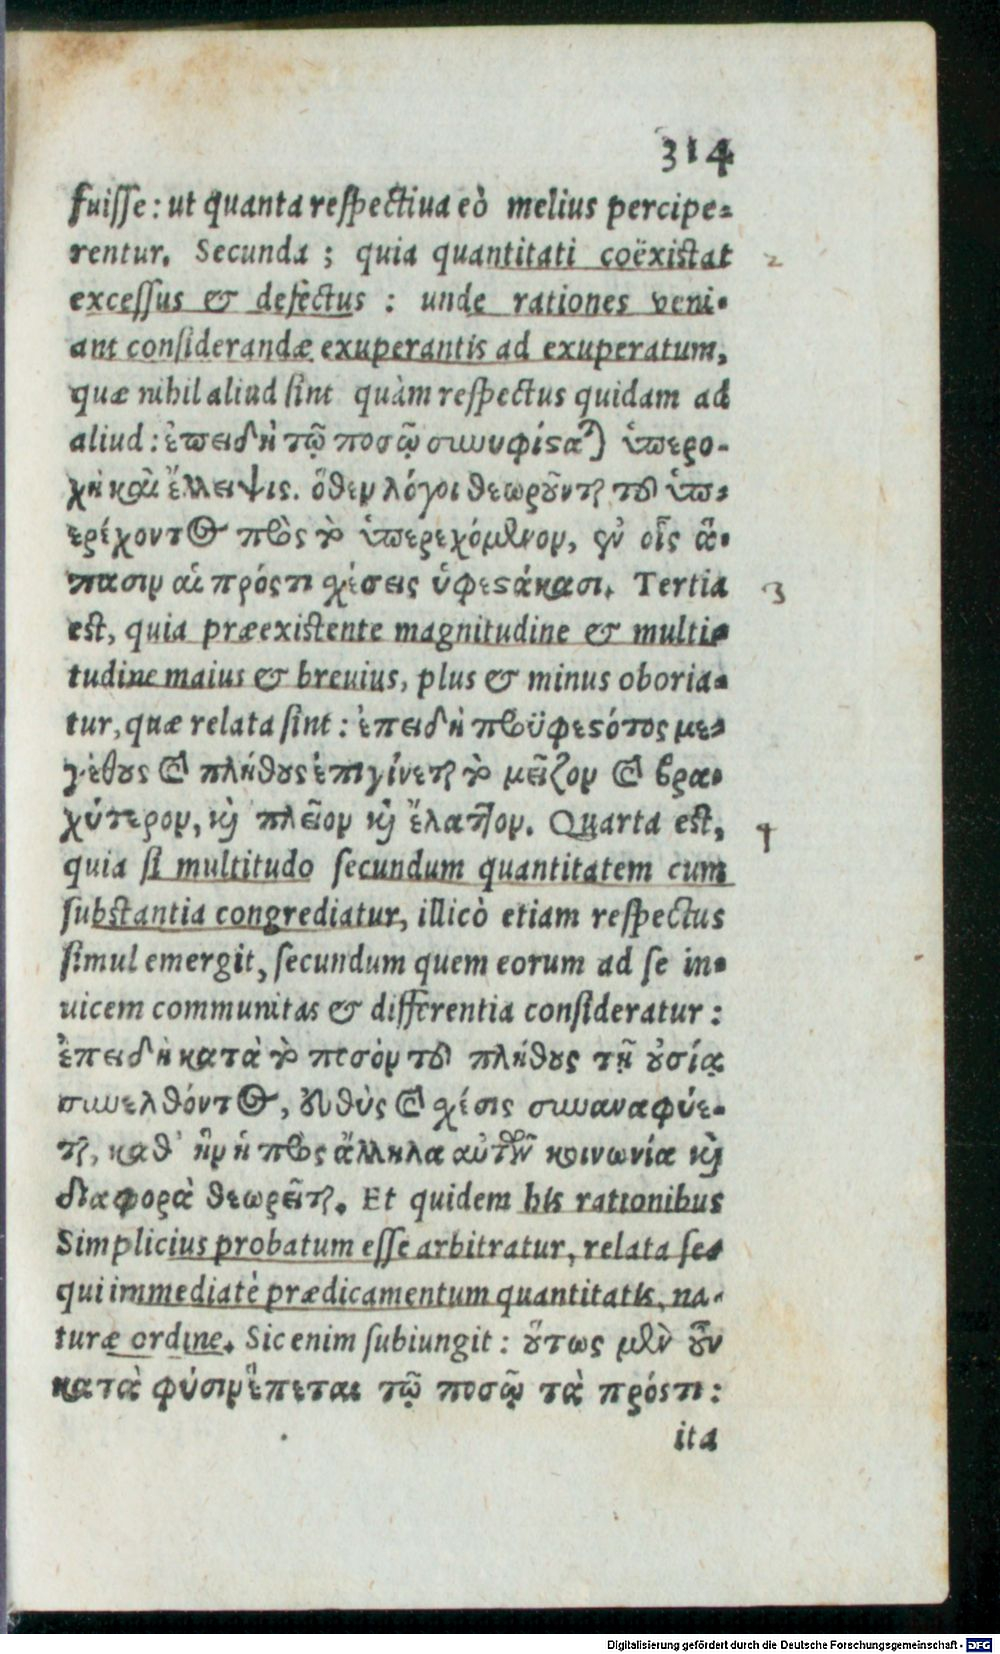 314
fuisse: ut quanta respectiua eò melius percipe=
rentur. Secunda ; quia quantitati coëxistat
excessus & defectus : unde rationes veni=
ant considerandæ exuperantis ad exuperatum,
quæ nihil aliud sint quàm respectus quidam ad
aliud: ἐπειδὴ τῷ ποσῷ συνυφίσαται ὑπερο-
χὴ καὶ ἔλλειψις. ὅθεν λόγοι θεωροῦνται τοῦ ὑπ=
ερέχοντος πρὸς τὸ ὑπερεχόμενον, ἐν οἷς ἅ=
πασιν αἱ πρόστι σχέσεις ὑφεστάκασι. Tertia
est, quia præexistente magnitudine & multi=
tudine maius & breuius, plus & minus oboria=
tur, quæ relata sint: ἐπειδὴ προϋφεστότος με=
γέθους καὶ πλήθους ἐπιγίνεται τὸ μεῖζον καὶ βρα=
χύτερον, καὶ πλεῖον καὶ ἔλαττον. Quarta est,
quia si multitudo secundum quantitatem cum
substantia congrediatur, illicò etiam respectus
simul emergit, secundum quem eorum ad se in=
uicem communitas & differentia consideratur :
ἐπειδὴ κατὰ τὸ ποσὸν τοῦ πλήθους τῇ οὐσίᾳ
συνελθόντος, εὐθὺς καὶ σχέσις συναναφύε=
ται, καθ' ἣν ἡ πρὸς ἄλληλα αὐτῶν κοινωνία καὶ
διαφορὰ θεωρεῖται. Et quidem his rationibus
Simplicius probatum esse arbitratur, relata se=
qui immediatè prædicamentum quantitatis, na=
turæ ordine. Sic enim subiungit: οὕτως μὲν οὖν
κατὰ φύσιν ἕπεται τῷ ποσῷ τὰ πρόστι:
ita
2
3
4
Digitalisierung gefördert durch die Deutsche Forschungsgemeinschaft - DFG